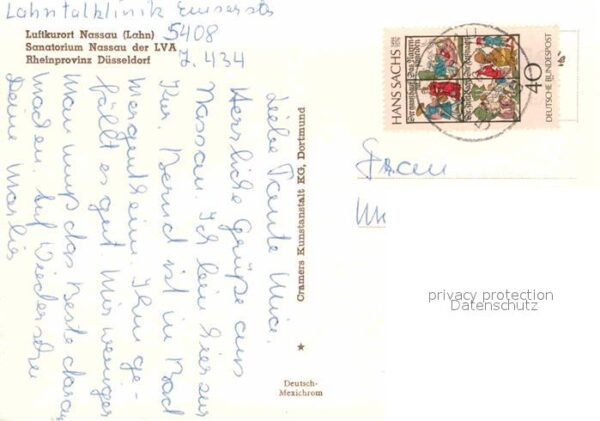 Lahntalklinik Emserstr
5408
Z. 434
Luftkurort Nassau (Lahn)
Sanatorium Nassau der LVA
Rheinprovinz Düsseldorf
Liebe Tante Mice.
Herrliche Grüße aus
Nassau. Ich bin hier zur
Kur. Bernd ist in Bad
Mergentheim. Ihm ge-
fällt es gut. Mir weniger
Man muß das Beste daraus
machen. Auf Wiedersehen
Deine Marlis
Cramers Kunstanstalt KG, Dortmund
Deutsch-
Mexichrom
HANS SACHS
DEUTSCHE BUNDESPOST
40
Frau
privacy protection
Datenschutz